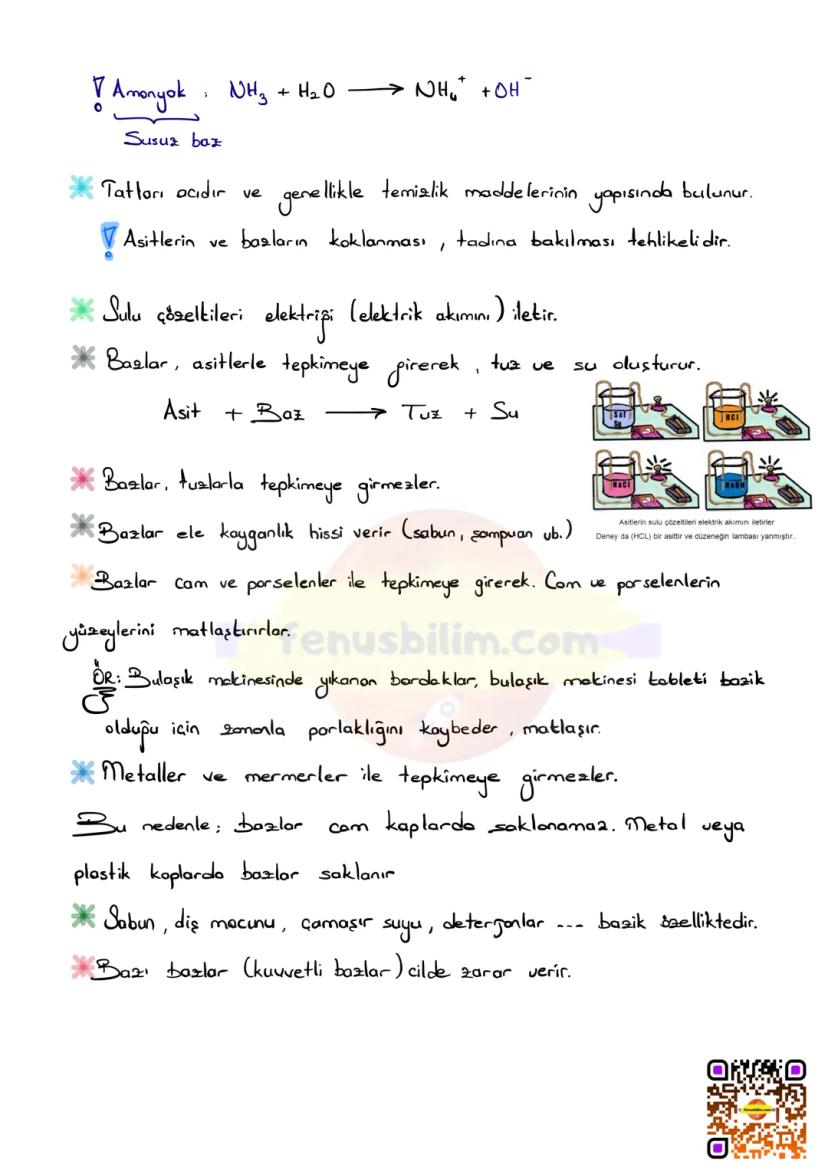 ! Amonyak : NH₃ + H₂O ⟶ NH₄⁺ + OH⁻
Susuz baz
Tatları acıdır ve genellikle temizlik maddelerinin yapısında bulunur.
! Asitlerin ve bazların koklanması, tadına bakılması tehlikelidir.
Sulu çözeltileri elektriği (elektrik akımını) iletir.
Bazlar, asitlerle tepkimeye girerek, tuz ve su oluşturur.
Asit + Baz ⟶ Tuz + Su
Saf Su
HCl
NaCl
NaOH
Asitlerin sulu çözeltileri elektrik akımını iletirler
Deney da (HCL) bir asittir ve düzeneğin lambası yanmıştır..
Bazlar, tuzlarla tepkimeye girmezler.
Bazlar ele kayganlık hissi verir (sabun, şampuan vb.)
Bazlar cam ve porselenler ile tepkimeye girerek. Cam ve porselenlerin
yüzeylerini matlaştırırlar.
fenusbilim.com
ÖR: Bulaşık makinesinde yıkanan bardaklar, bulaşık makinesi tableti bazik
olduğu için zamanla parlaklığını kaybeder, matlaşır.
Metaller ve mermerler ile tepkimeye girmezler.
Bu nedenle; bazlar cam kaplarda saklanamaz. Metal veya
plastik kaplarda bazlar saklanır
Sabun, diş macunu, çamaşır suyu, deterjanlar --- bazik özelliktedir.
Bazı bazlar (kuvvetli bazlar) cilde zarar verir.
fenusbilim.com